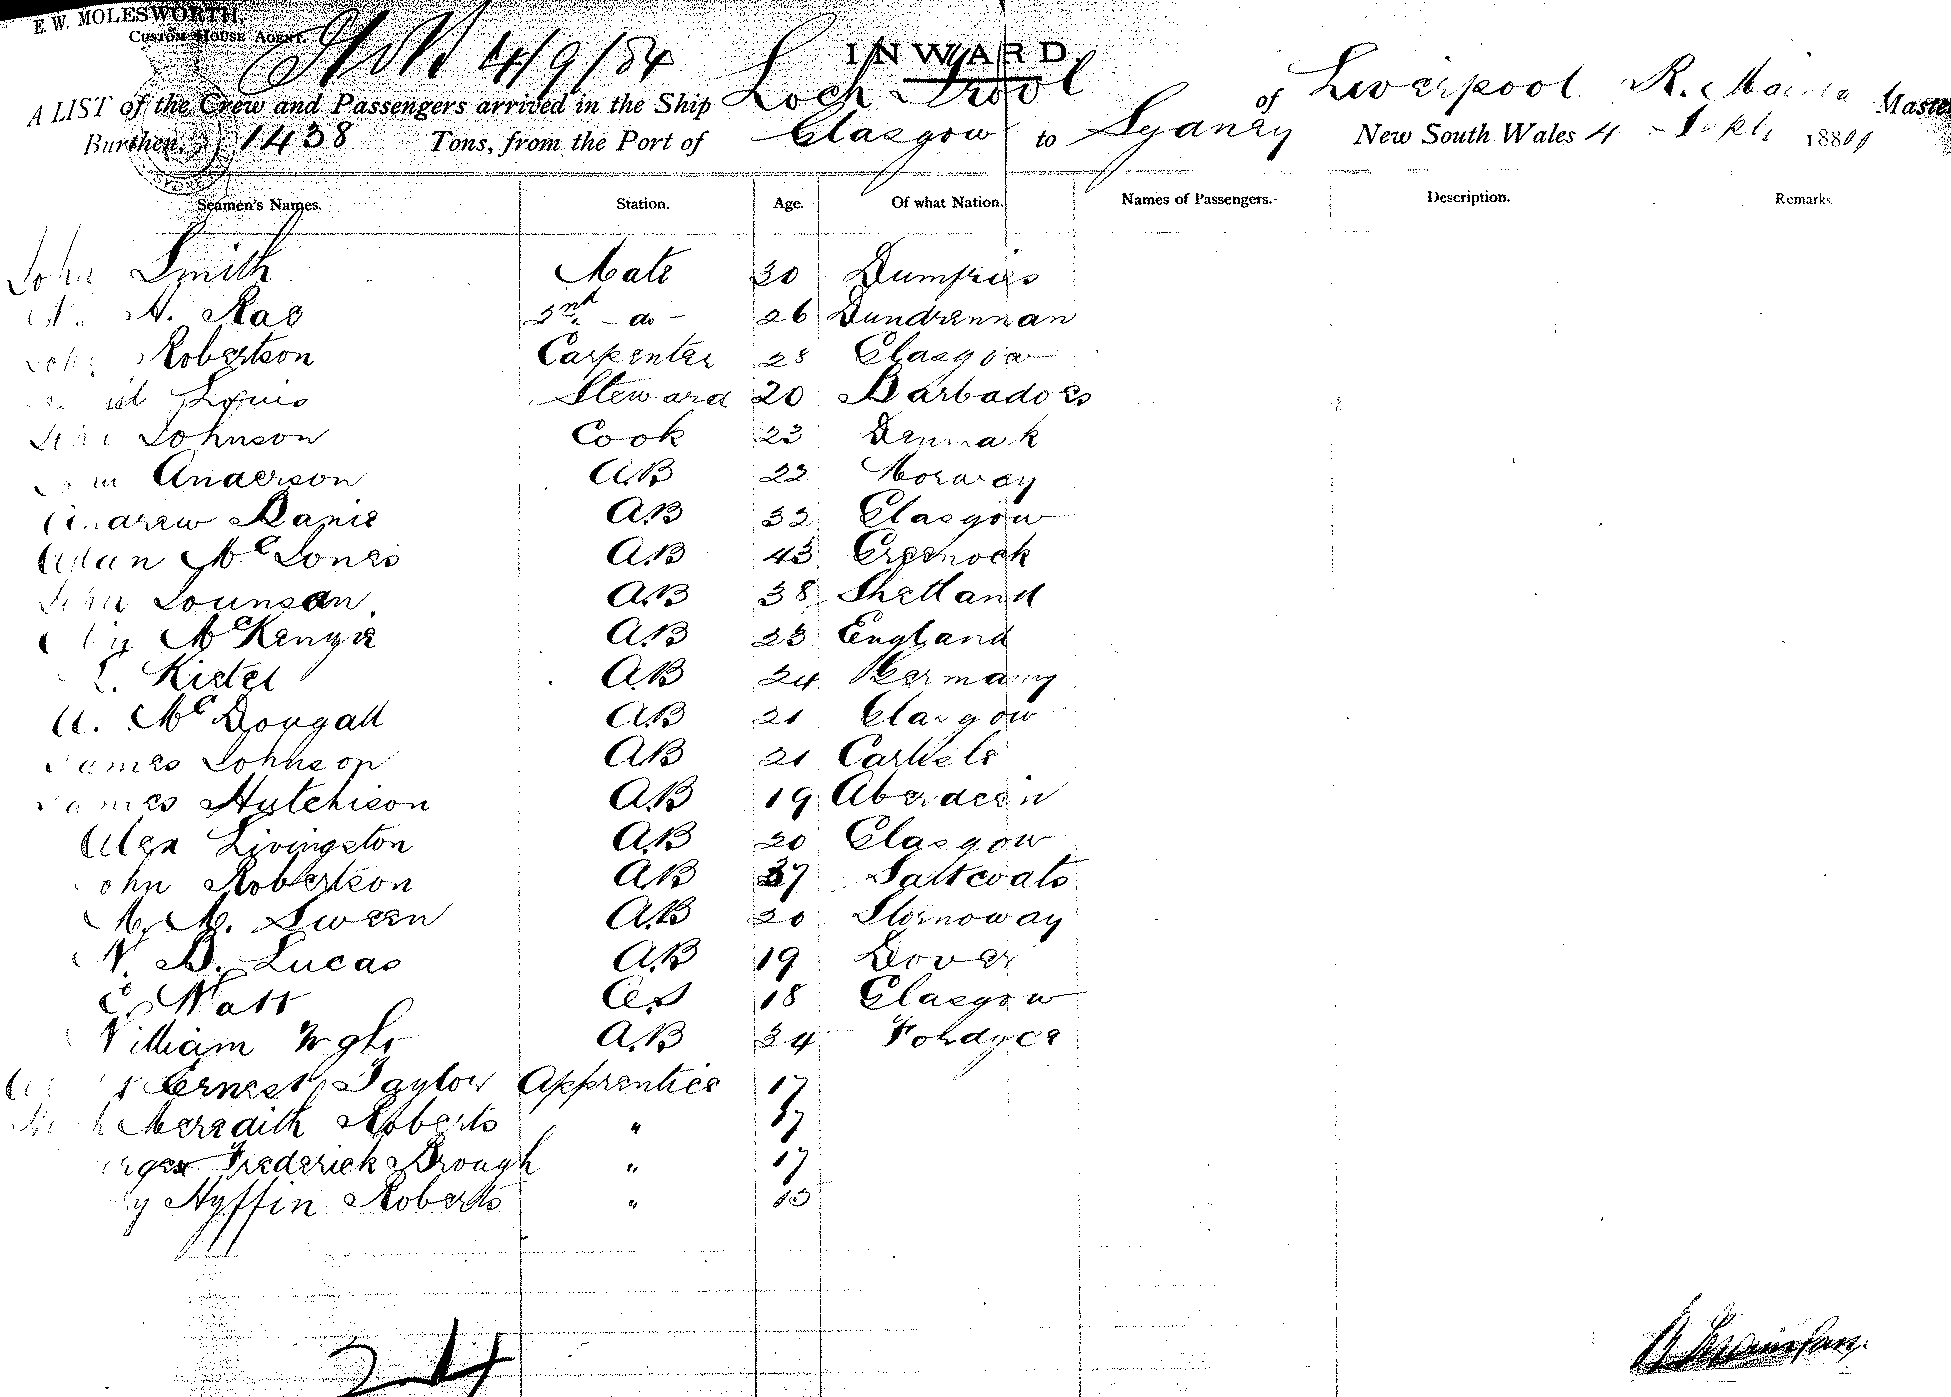 E. W. MOLESWORTH,
CUSTOM HOUSE AGENT.
4/9/84
INWARD
A LIST of the Crew and Passengers arrived in the Ship Loch Trool of Liverpool R. Master
Burthen, 1438 Tons, from the Port of Glasgow to Sydney New South Wales 4 Sept 188
Seamen's Names. Station. Age. Of what Nation. Names of Passengers. Description. Remarks
John Smith Mate 30 Dumfries
A. Rae 2nd - do - 26 Dundrennan
John Robertson Carpenter 28 Glasgow
Louis Steward 20 Barbadoes
John Johnson Cook 23 Denmark
Anderson A.B 22 Norway
Andrew Danie A.B 33 Glasgow
Mc A.B 43 Greenock
John A.B 38 Shetland
McKenzie A.B 23 England
Kietel A.B 24 Germany
A. McDougall A.B 21 Glasgow
James Johnson A.B 21 Carlisle
James Hutchison A.B 19 Aberdeen
Alex Livingston A.B 20 Glasgow
John Robertson A.B 37 Saltcoats
M. M. Sween A.B 20 Stornoway
W. D. Lucas A.B 19 Dover
Watt O.S 18 Glasgow
William A.B 34 Fordyce
Ernest Taylor Apprentice 17
Meredith Roberts " 17
Frederick Brough " 17
Hyffin Roberts "
24